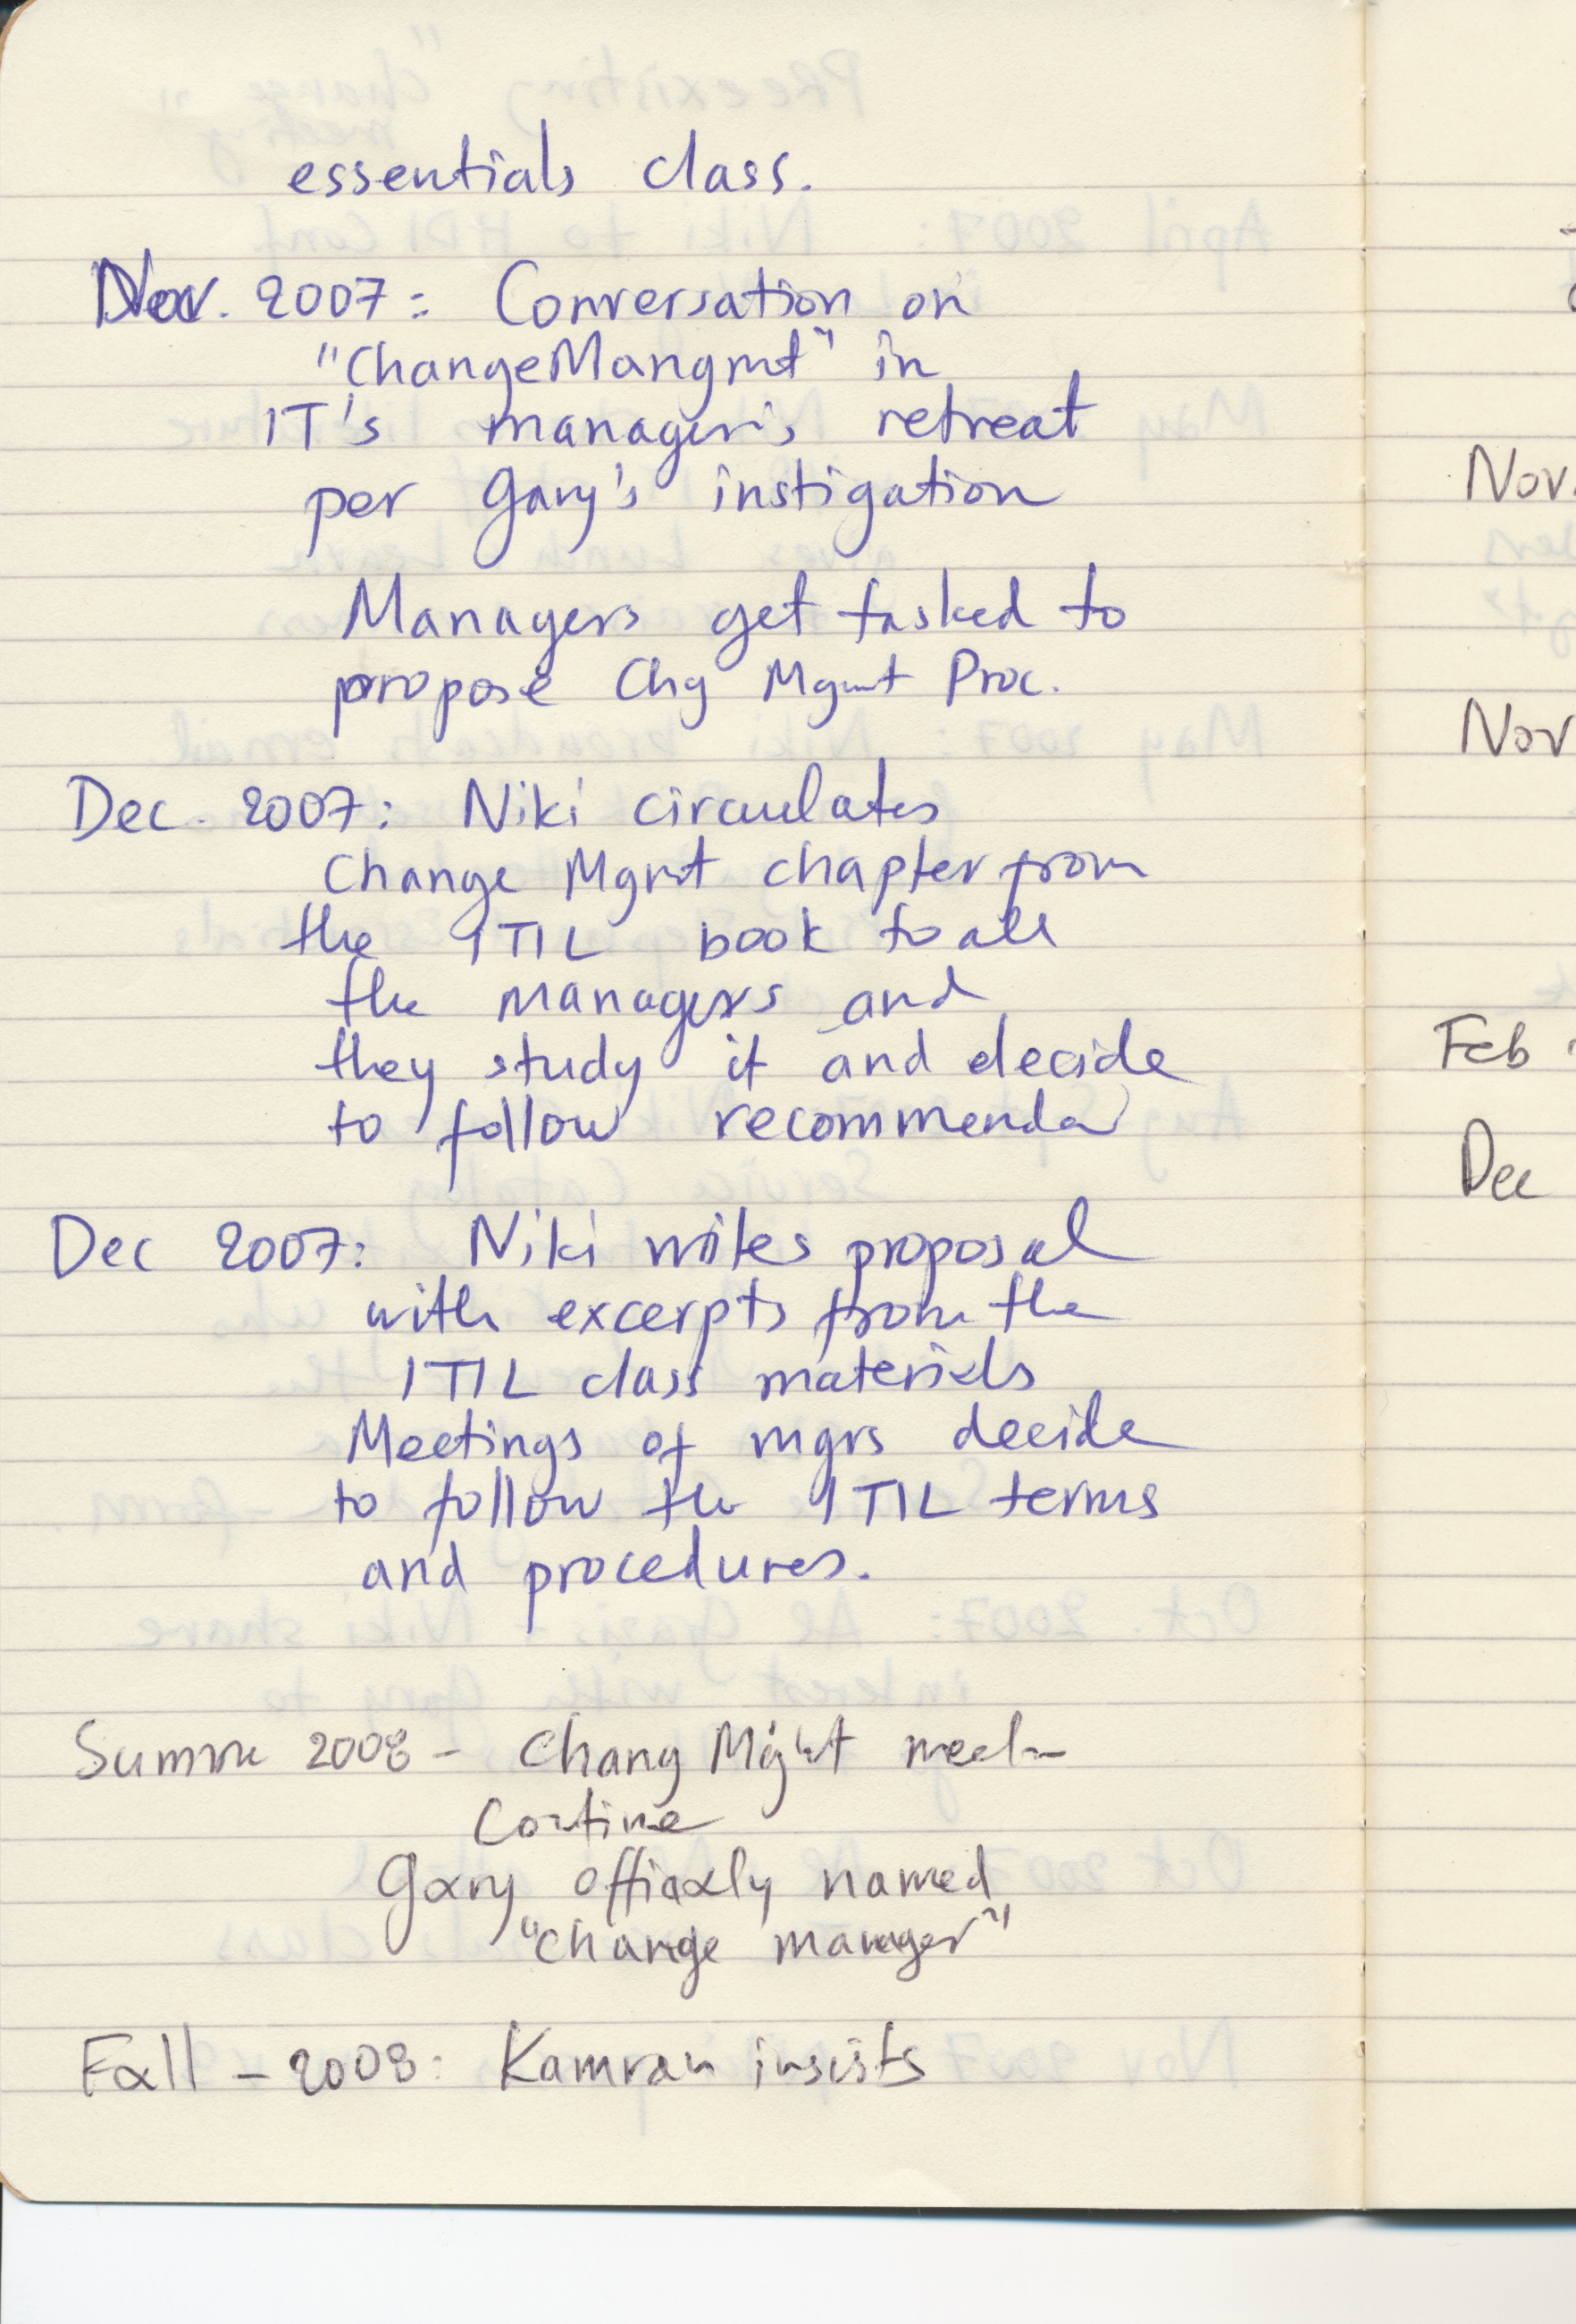 essentials class.
Nov. 2007: Conversation on
"ChangeMangmt" in
IT's manager's retreat
per Gary's instigation
Managers get tasked to
propose Chg Mgmt Proc.
Dec. 2007: Niki circulates
Change Mgmt chapter from
the ITIL book to all
the managers and
they study it and decide
to follow recommenda
Dec 2007: Niki writes proposal
with excerpts from the
ITIL class materials
Meetings of mgrs decide
to follow the ITIL terms
and procedures.
Summe 2008 - Chang Mgmt
Continue
Gary officially named
"change manager"
Fall - 2008: Kamran insists
Nov.
Nov
Feb
Dec